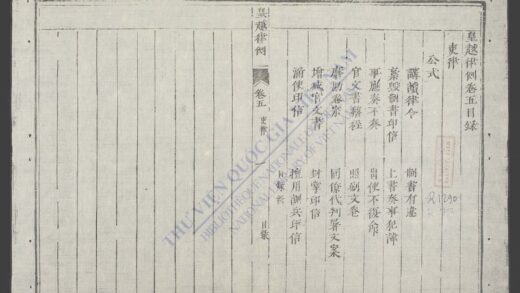 皇越律例卷五目録
吏律
公式
講讀律令 制書有違
棄毀制書印信 上書奏事犯諱
事應奏不奏 出使不復命
官文書稽程 照刷文卷
磨勘卷宗 同僚代判署文案
增減官文書 封掌印信
漏使印信 擅用調兵印信
皇越律例 卷五 吏律 目録
R.1290
THƯ VIỆN QUỐC GIA VIỆT NAM
BIBLIOTHÈQUE NATIONALE DU VIETNAM
NATIONAL LIBRARY OF VIETNAM